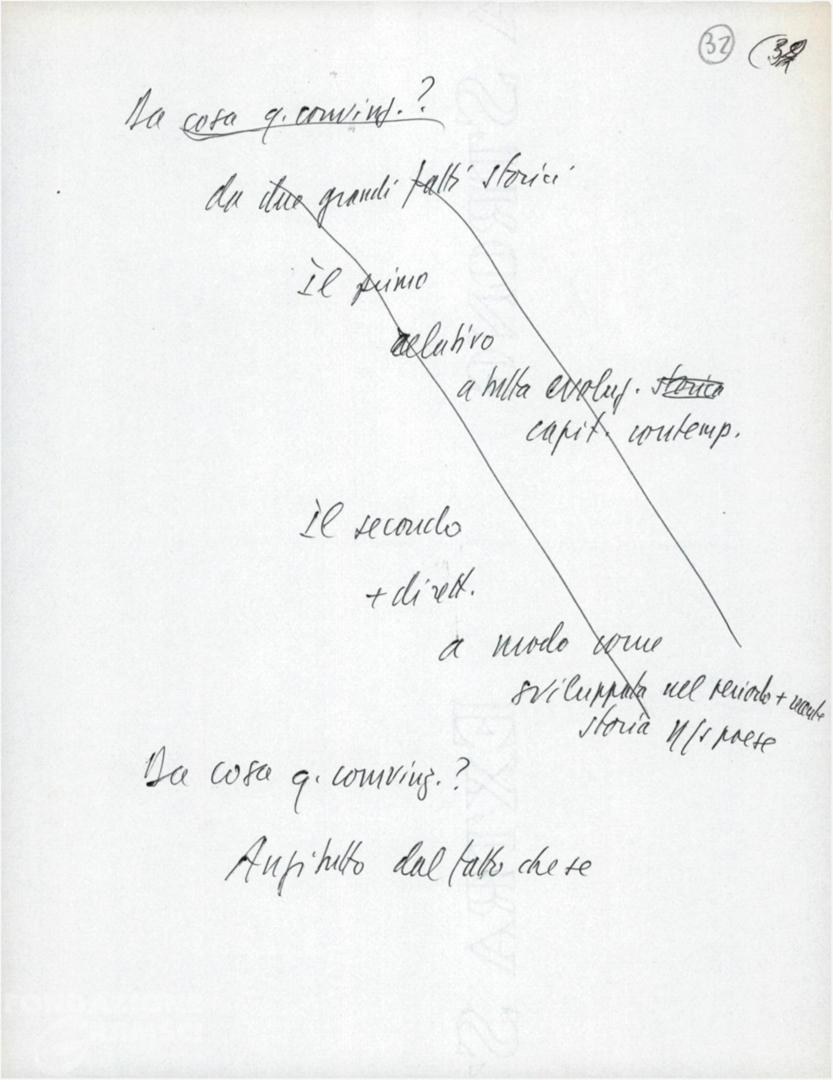 32 (32
Da cosa q. conving.?
da due grandi fatti storici
Il primo
relativo
a tutta evoluz. storica
capit. contemp.
Il secondo
+ dirett.
a modo come
sviluppata nel periodo + recente
storia n/s paese
Da cosa q. conving.?
Anzitutto dal fatto che se
FONDAZIONE